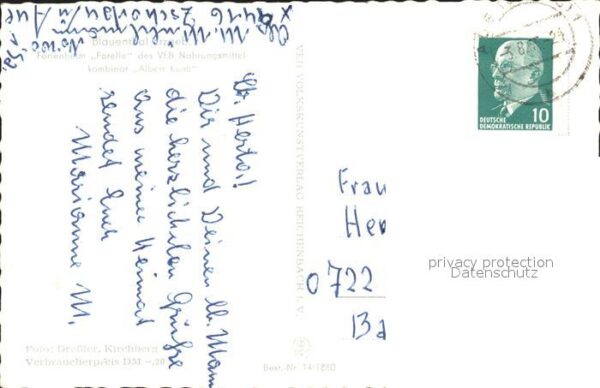 Blauenthal Erzgeb.
Ferienheim „Forelle" des VEB Nahrungsmittel-
kombinat „Albert Kuntz"
Lb. Herta!
Dir und Deinen lb. Mann
die herzlichsten Grüße
aus meiner Heimat
sendet Euch
Marianne M.
VEB VOLKSKUNSTVERLAG REICHENBACH I. V.
10
DEUTSCHE
DEMOKRATISCHE REPUBLIK
Frau
Her
0722
Ba
privacy protection
Datenschutz
Foto: Dreßler, Kirchberg
Verbraucherpreis DM -,20
Best.-Nr. 14/1860